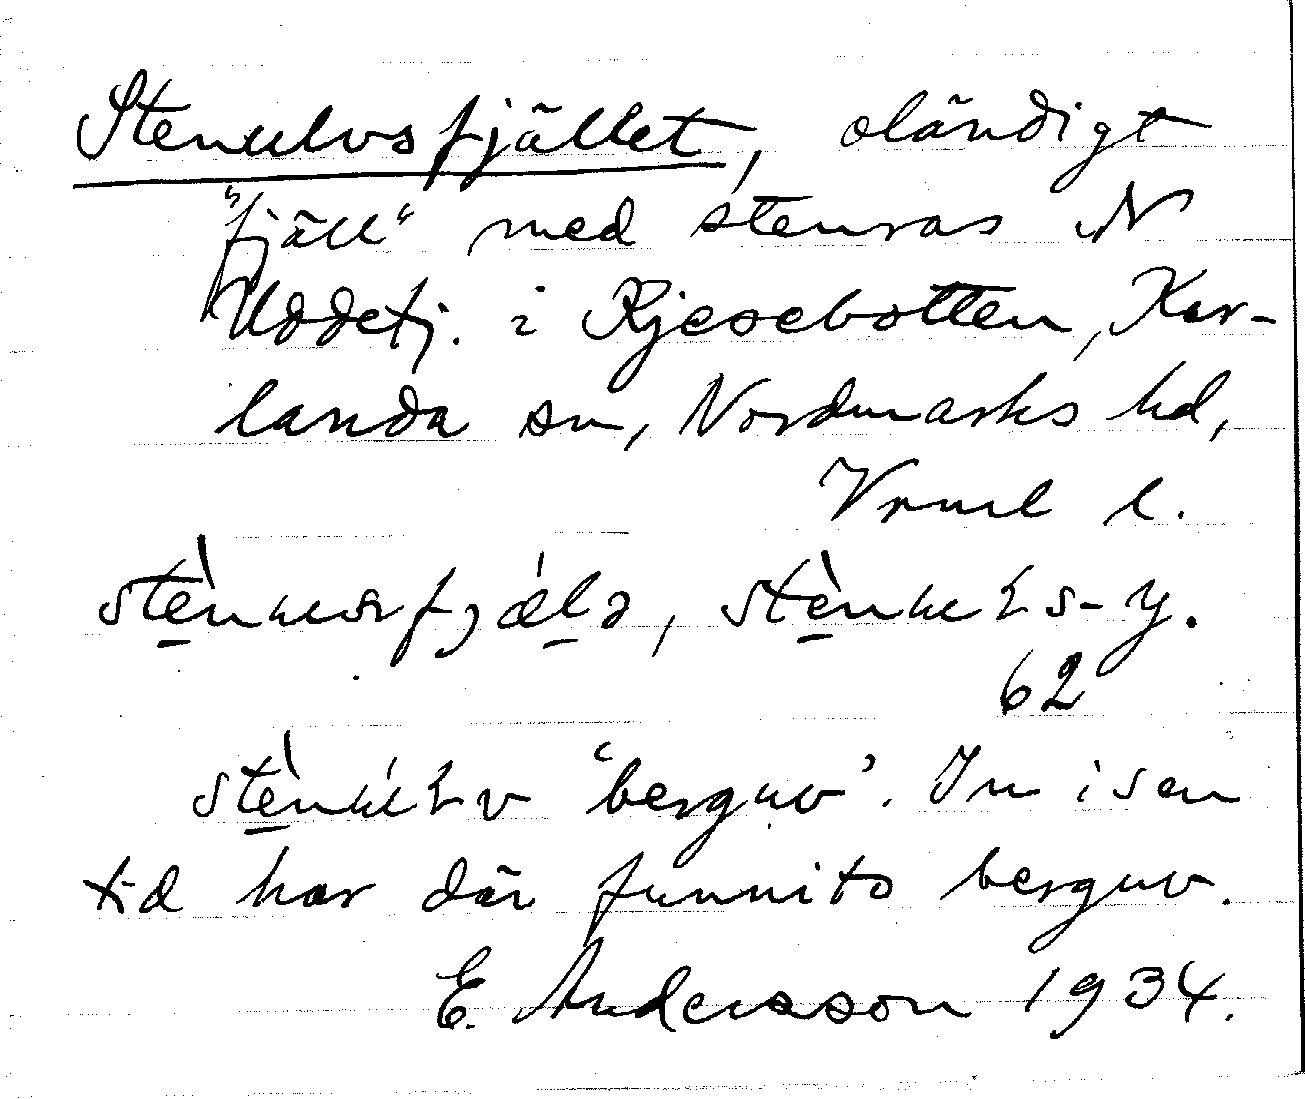 Stenulvsfjället, oländigt
"fjäll" med stenras N
Uddetj. i Rjesebotten, Kar-
landa sn, Nordmarks hd,
Vrml l.
62
'berguv'. In i sen
tid har där funnits berguv.
E. Andersson 1934.